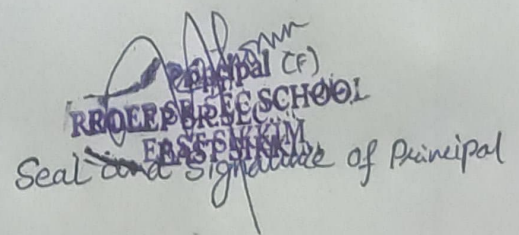 Principal (F)
SEC SCHOOL
EAST SIKKIM
Seal and Signature of Principal